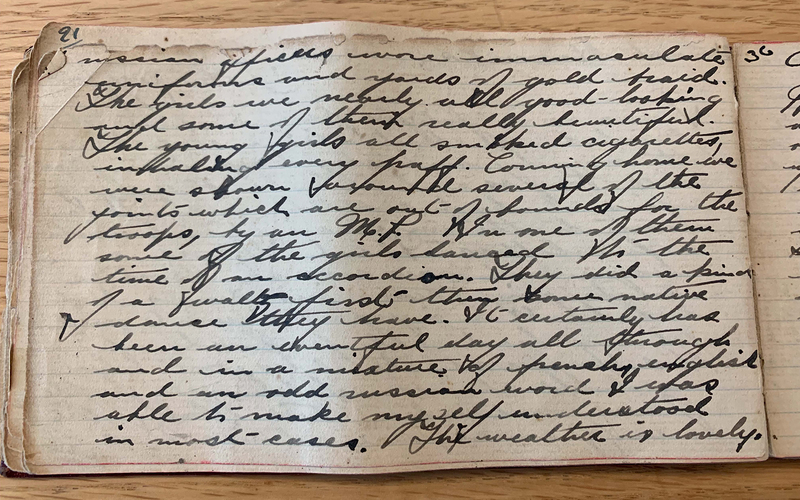 91
russian officers wore immaculate
uniforms and yards of gold braid.
The girls we nearly all good-looking
and some of them really beautiful.
The young girls all smoked cigarettes,
inhaling every puff. Coming home we
were shown around several of the
joints which are out of bounds for the
troops, by an M.P. In one of them
some of the girls danced to the
time of an accordeon. They did a kind
of a waltz first then some native
dance they have. It certainly has
been an eventful day all through
and in a mixture of french, english
and an odd russian word I was
able to make myself understood
in most cases. The weather is lovely.
36